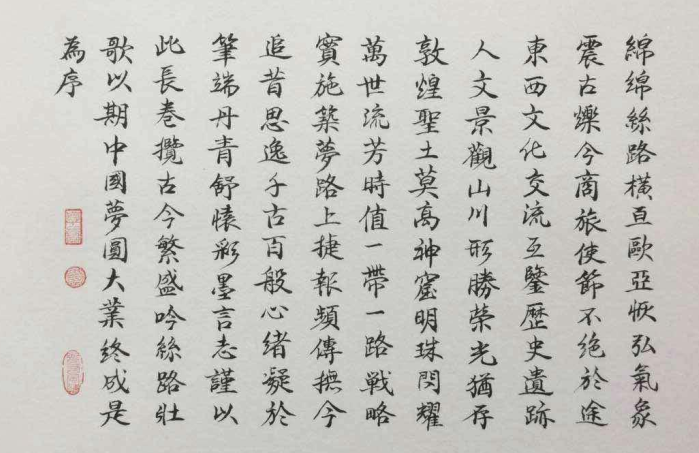 綿綿絲路橫亘歐亞恢弘氣象
震古爍今商旅使節不絕於途
東西文化交流互鑒歷史遺跡
人文景觀山川形勝榮光猶存
敦煌聖土莫高神窟明珠閃耀
萬世流芳時值一帶一路戰略
實施築夢路上捷報頻傳撫今
追昔思逸千古百般心緒凝於
筆端丹青舒懷彩墨言志謹以
此長卷攬古今繁盛吟絲路壯
歌以期中國夢圓大業終成是
為序